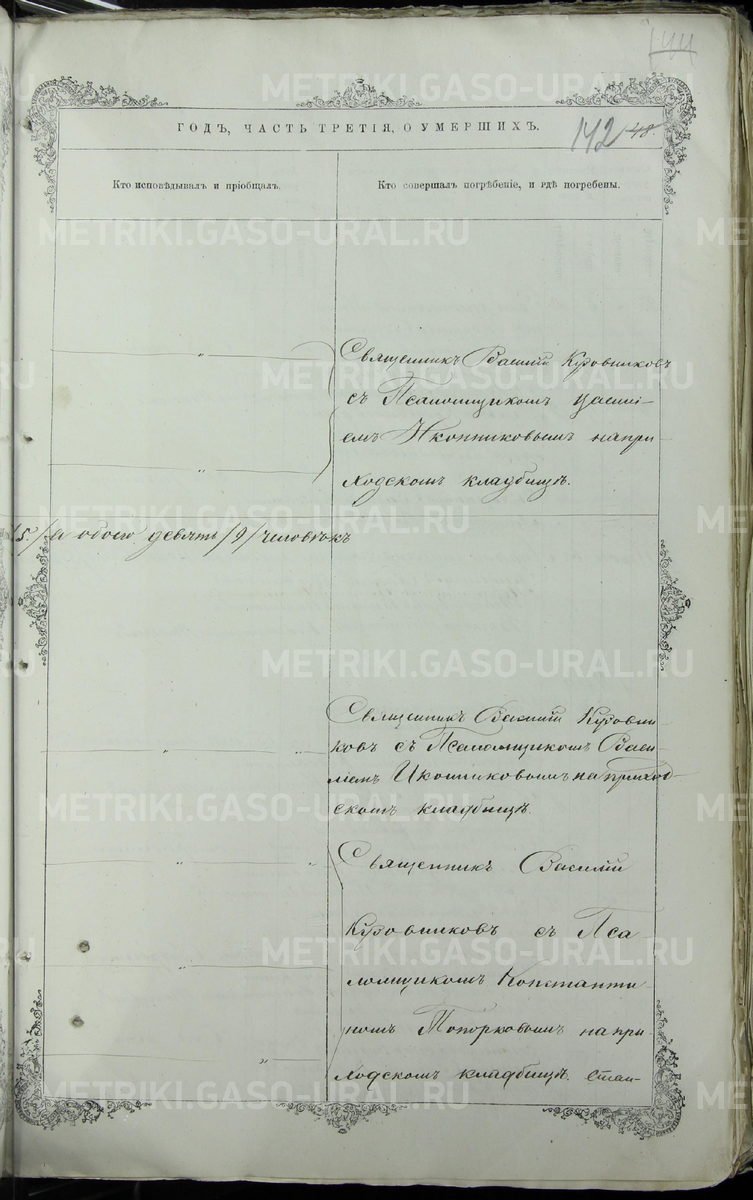 144
ГОДЪ, ЧАСТЬ ТРЕТІЯ, О УМЕРШИХЪ.
142 48
Кто исповѣдывалъ и пріобщалъ.
Кто совершалъ погрѣбеніе, и гдѣ погребены.
Священникъ Василій Куровиковъ
съ Псаломщикомъ Васи-
емъ Иконниковымъ на при-
ходскомъ кладбищѣ.
5./ а обоего девять /9/ человѣкъ
Священникъ Василій Курови-
ковъ съ Псаломщикомъ Васи-
ліемъ Иконниковымъ на приход-
скомъ кладбищѣ.
Священникъ Василій
Куровиковъ съ Пса
ломщикомъ Константи
номъ Топорковымъ на при-
ходскомъ кладбищѣ.
METRIKI.GASO-URAL.RU